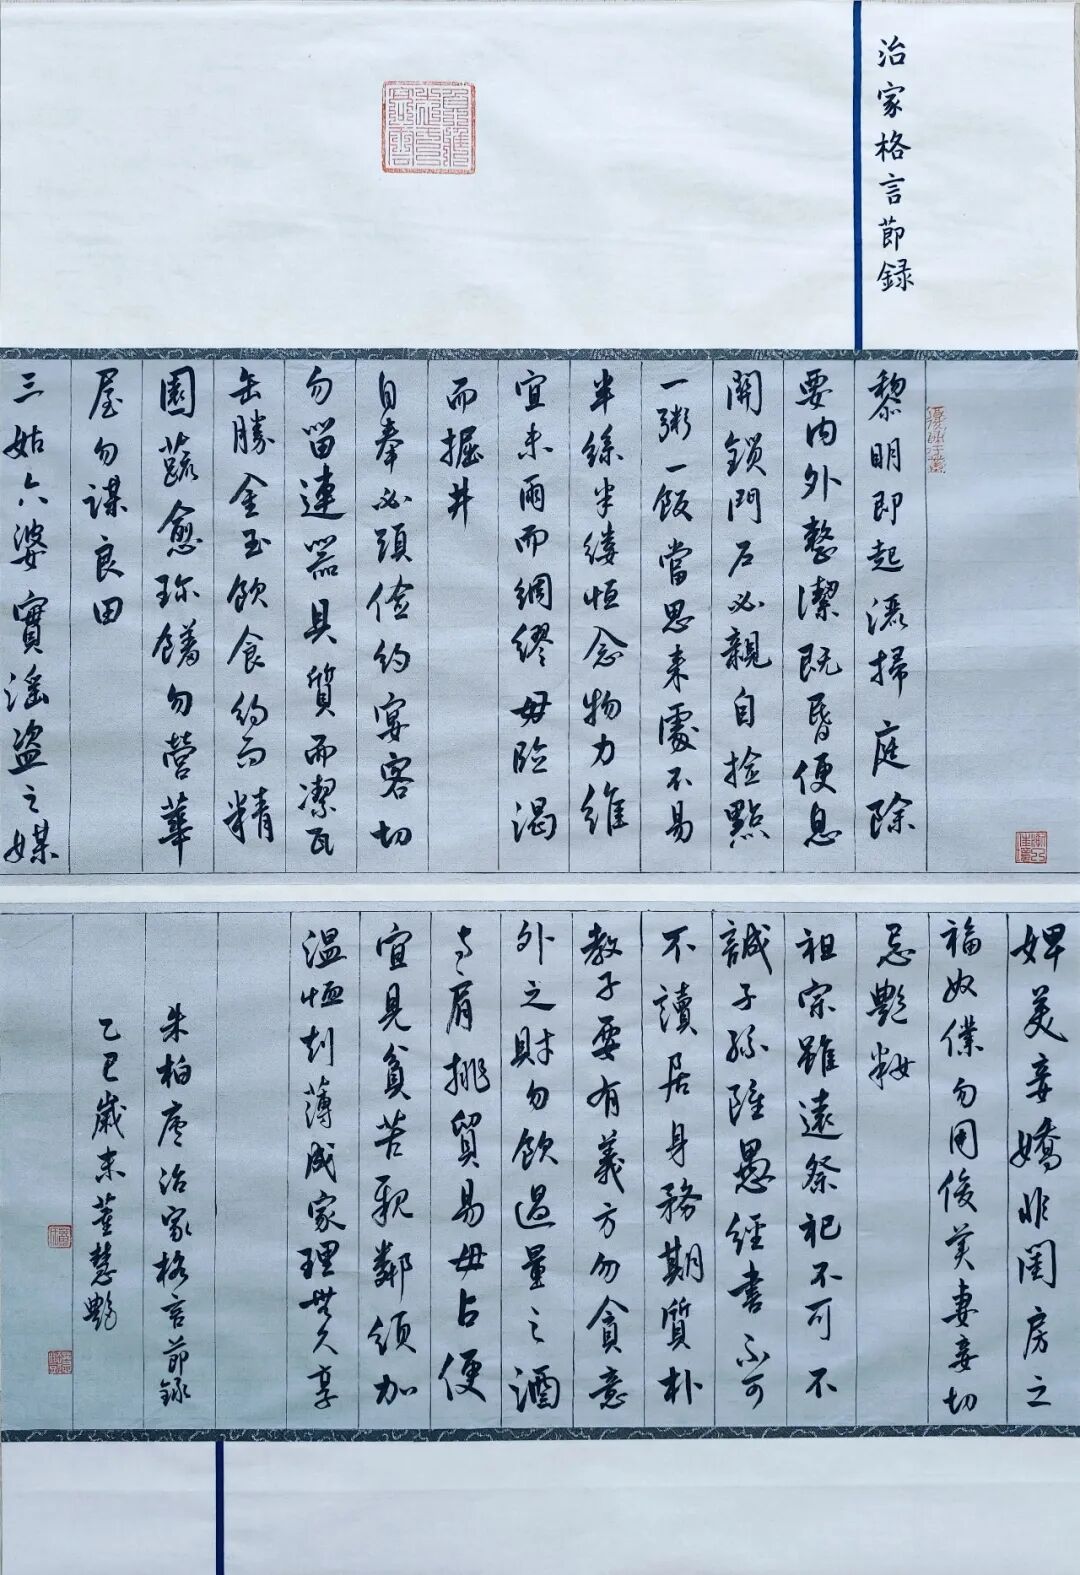 治家格言節録
黎明即起灑掃庭除
要内外整潔既昏便息
關鎖門戶必親自捡點
一粥一飯當思来處不易
半絲半縷恒念物力維
宜未雨而綢繆毋临渴
而掘井
自奉必須儉約宴客切
勿留連器具質而潔瓦
缶勝金玉飲食約而精
園蔬愈珍饈勿營華
屋勿謀良田
三姑六婆實淫盗之媒
婢美妾嬌非閨房之
福奴僕勿用俊美妻妾切
忌艷妝
祖宗雖遠祭祀不可不
誠子孫雖愚經書不可
不讀居身務期質朴
教子要有義方勿貪意
外之財勿飲過量之酒
与肩挑貿易毋占便
宜見貧苦親鄰須加
温恤刻薄成家理無久享
朱柏庐治家格言節録
乙巳歲末董慧艷